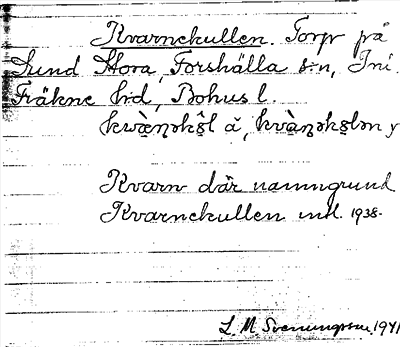 Kvarnekullen. Torp på
Sund Stora, Forshälla s:n, Ini.
Fräkne h:d, Bohus l.
Kvarn där namngrund
Kvarnekullen enl. 1938.
L. M. Svenungsson 1941